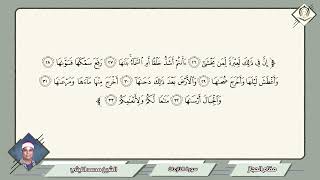 ﴿ إِنَّ فِي ذَٰلِكَ لَعِبْرَةً لِّمَن يَخْشَىٰ ٢٦ ءَأَنتُمْ أَشَدُّ خَلْقًا أَمِ السَّمَاءُ ۚ بَنَاهَا ٢٧ رَفَعَ سَمْكَهَا فَسَوَّاهَا ٢٨
وَأَغْطَشَ لَيْلَهَا وَأَخْرَجَ ضُحَاهَا ٢٩ وَالْأَرْضَ بَعْدَ ذَٰلِكَ دَحَاهَا ٣٠ أَخْرَجَ مِنْهَا مَاءَهَا وَمَرْعَاهَا ٣١
وَالْجِبَالَ أَرْسَاهَا ٣٢ مَتَاعًا لَّكُمْ وَلِأَنْعَامِكُمْ ٣٣ ﴾
مقام الحجاز
سورة النازعات